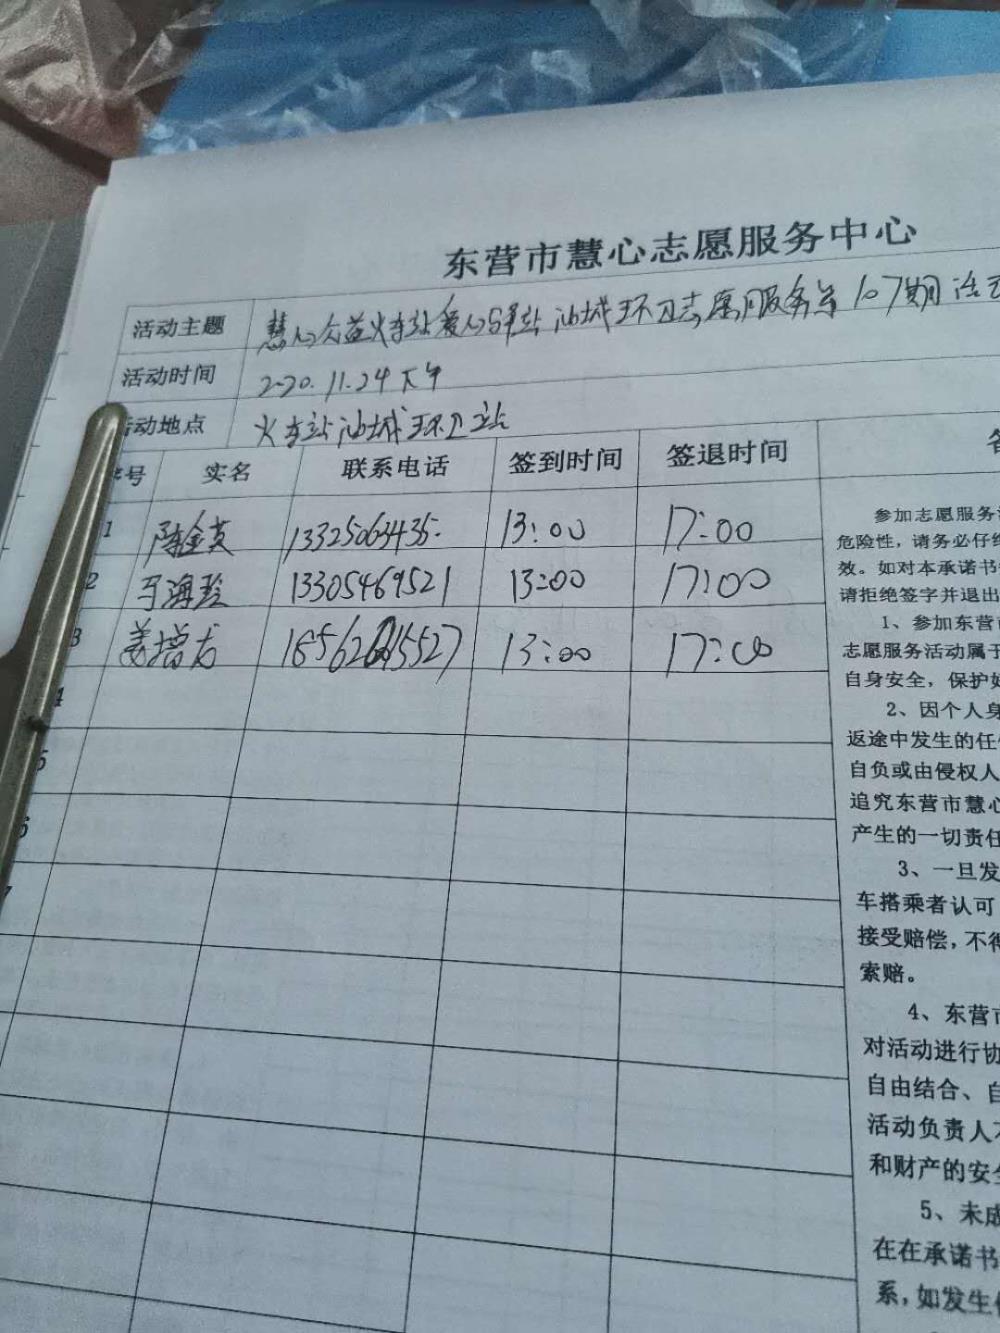 东营市慧心志愿服务中心
活动主题 慧心公益火车站爱心驿站 油城环卫志愿服务第107期活动
活动时间 2020.11.24下午
活动地点 火车站油城环卫站
序号 实名 联系电话 签到时间 签退时间 备
1 陈金英 13325063435 13:00 17:00
2 海玲 13305469521 13:00 17:00
3 姜增 1856215527 13:00 17:00
4
5
6
7
参加志愿服务
危险性，请务必仔细
效。如对本承诺书
请拒绝签字并退出
1、参加东营市
志愿服务活动属于
自身安全，保护好
2、因个人身
返途中发生的任何
自负或由侵权人
追究东营市慧心
产生的一切责任
3、一旦发
车搭乘者认可
接受赔偿，不得
索赔。
4、东营市
对活动进行协
自由结合、自
活动负责人不
和财产的安全
5、未成
在在承诺书
系，如发生